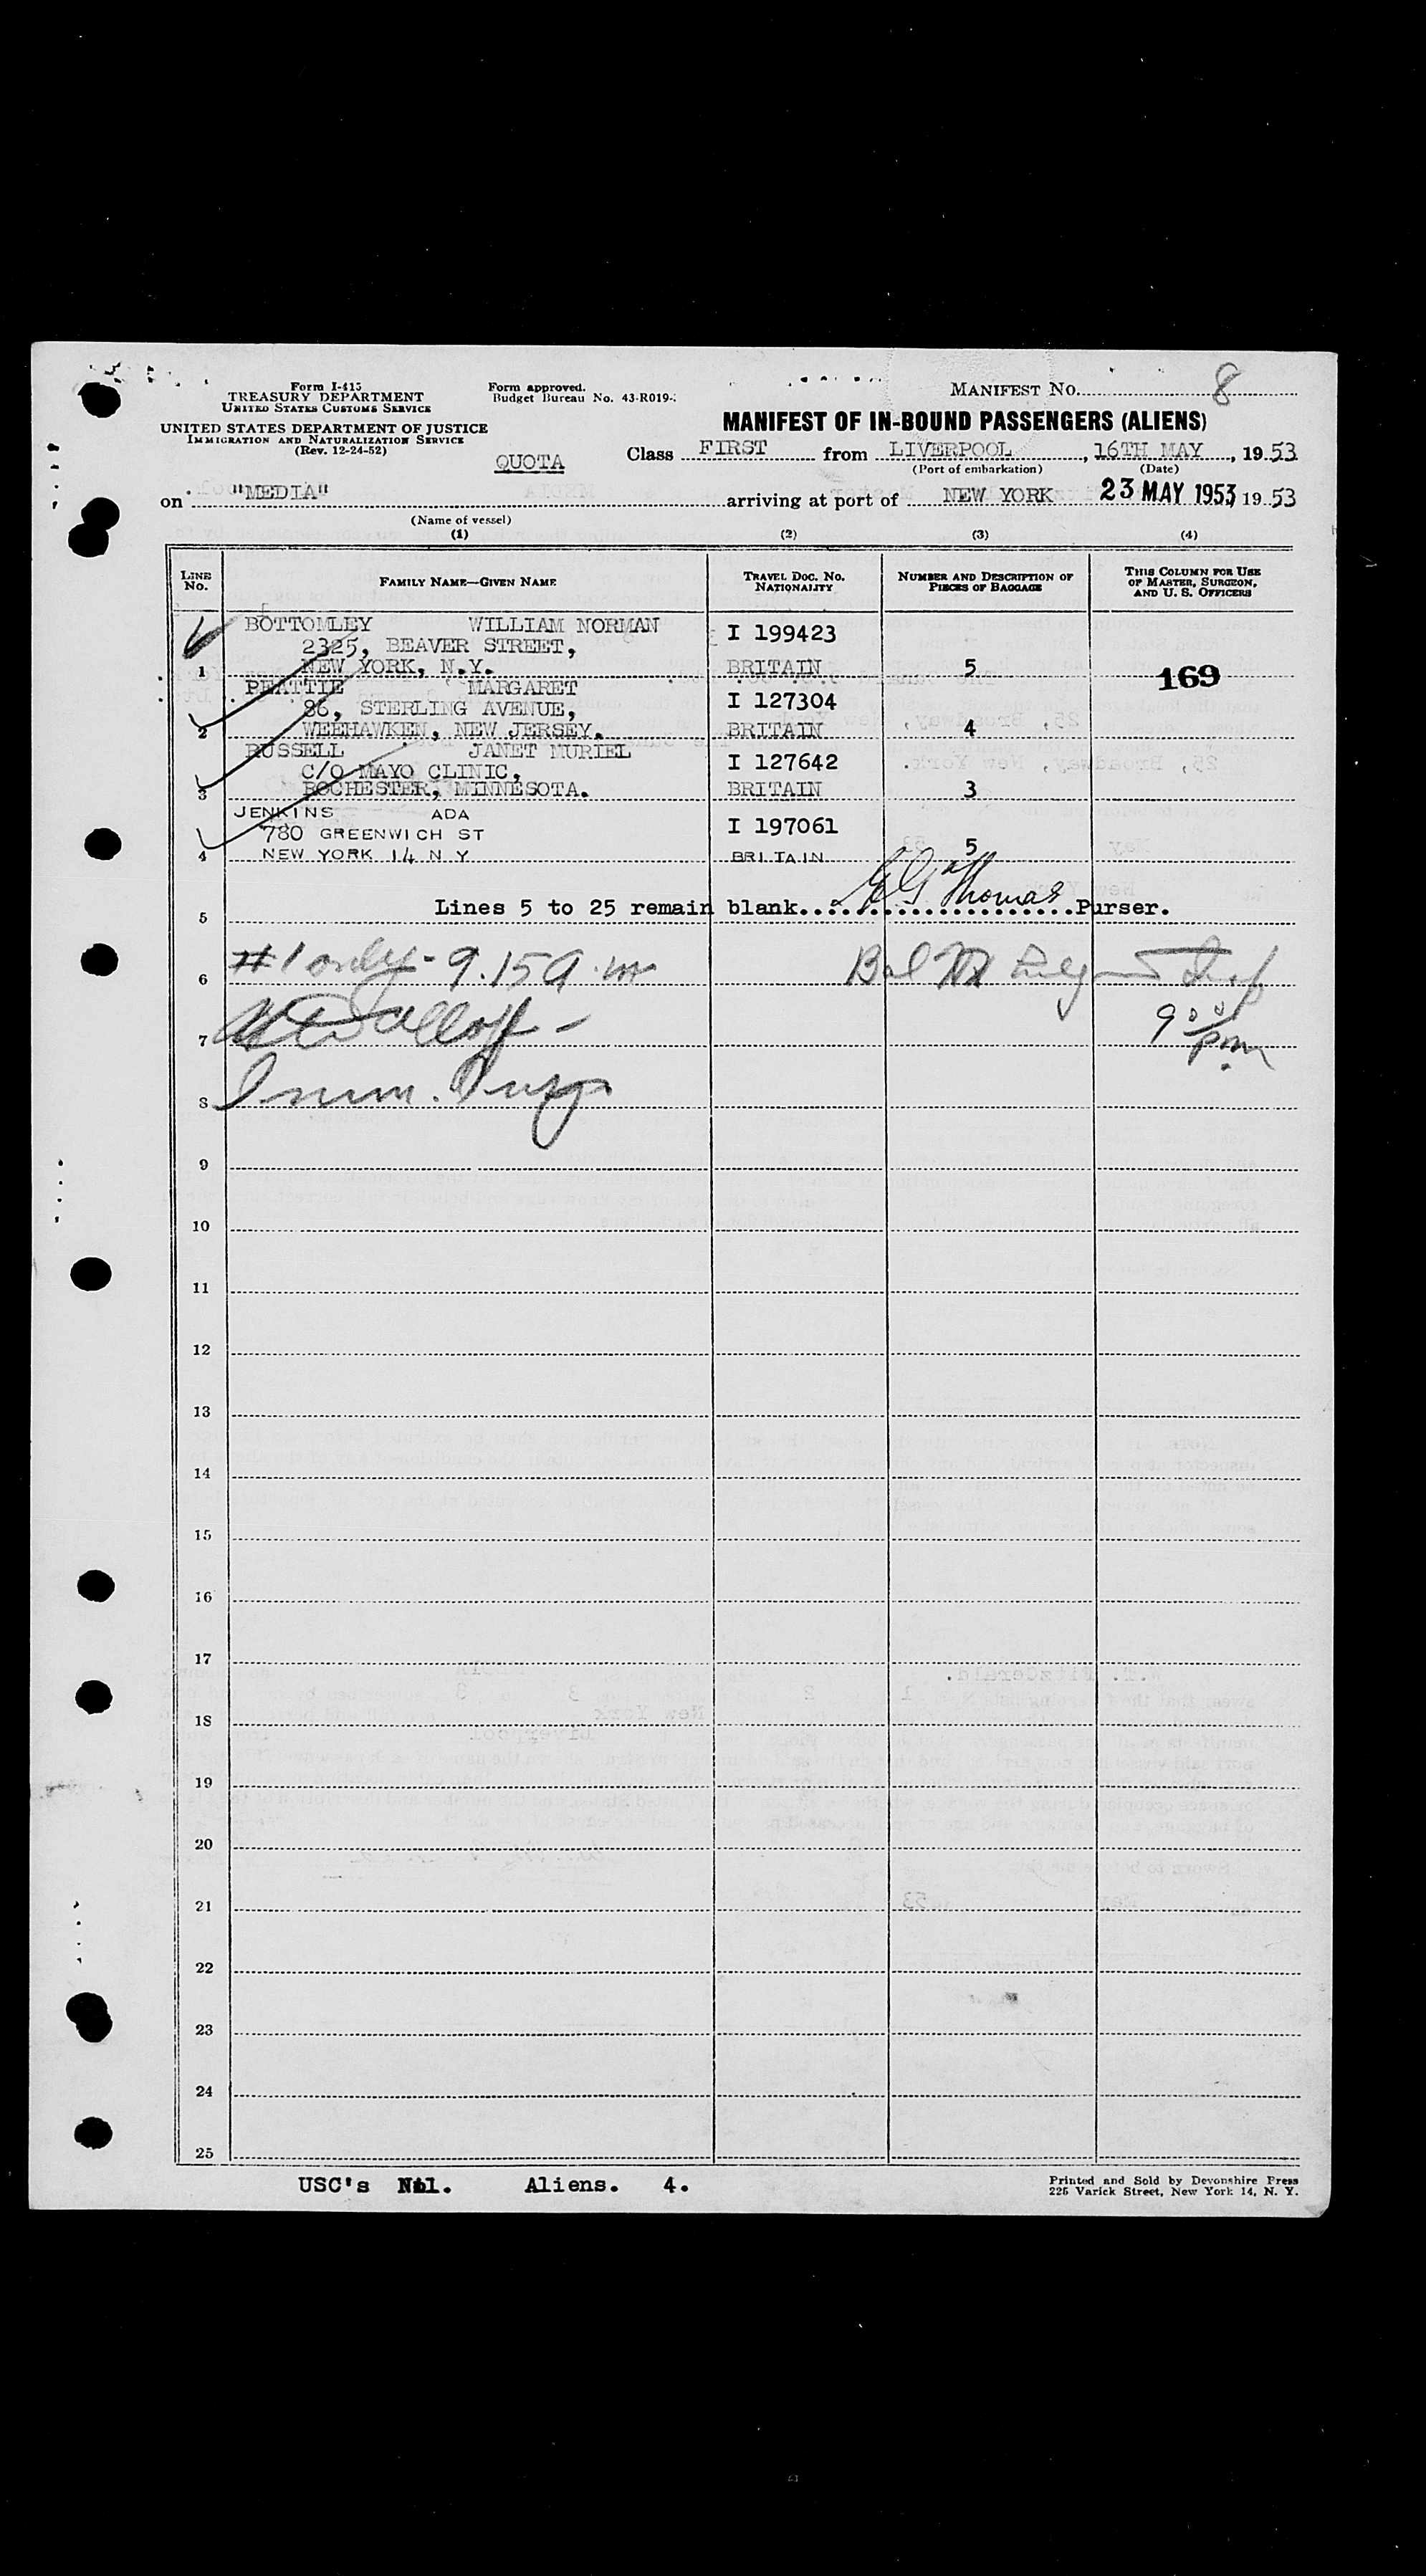 Form I-415
TREASURY DEPARTMENT
UNITED STATES CUSTOMS SERVICE
UNITED STATES DEPARTMENT OF JUSTICE
IMMIGRATION AND NATURALIZATION SERVICE
(Rev. 12-24-52)
Form approved.
Budget Bureau No. 43-R019-
MANIFEST NO. 8
MANIFEST OF IN-BOUND PASSENGERS (ALIENS)
QUOTA
Class FIRST from LIVERPOOL, 16TH MAY, 1953
(Port of embarkation) (Date)
on "MEDIA" arriving at port of NEW YORK 23 MAY 1953, 1953
(Name of vessel)
(1) (2) (3) (4)
LINE NO. FAMILY NAME—GIVEN NAME TRAVEL DOC. NO. NATIONALITY NUMBER AND DESCRIPTION OF PIECES OF BAGGAGE THIS COLUMN FOR USE OF MASTER, SURGEON, AND U. S. OFFICERS
BOTTOMLEY WILLIAM NORMAN I 199423
2325, BEAVER STREET,
1 NEW YORK, N.Y. BRITAIN 5 169
BEATTIE MARGARET I 127304
86, STERLING AVENUE,
2 WEEHAWKEN, NEW JERSEY. BRITAIN 4
RUSSELL JANET MURIEL I 127642
C/O MAYO CLINIC,
3 ROCHESTER, MINNESOTA. BRITAIN 3
JENKINS ADA I 197061
780 GREENWICH ST
4 NEW YORK 14 N Y BRITAIN 5
5 Lines 5 to 25 remain blank. Thomas Purser.
6 #1 only - 9.15 a.m
7 9 00 pm
8 Imm. Insp
9
10
11
12
13
14
15
16
17
18
19
20
21
22
23
24
25
USC's Nil. Aliens. 4.
Printed and Sold by Devonshire Press
225 Varick Street, New York 14, N. Y.